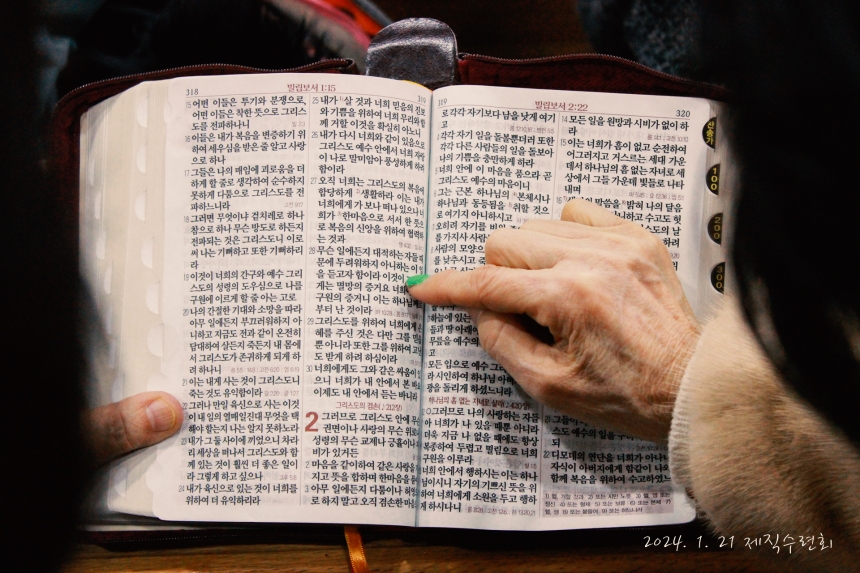 318
빌립보서 1:15
319
15 어떤 이들은 투기와 분쟁으로,
어떤 이들은 착한 뜻으로 그리스
도를 전파하나니
16 이들은 내가 복음을 변증하기 위
하여 세우심을 받은 줄 알고 사랑
으로 하나
17 그들은 나의 매임에 괴로움을 더
하게 할 줄로 생각하여 순수하지
못하게 다툼으로 그리스도를 전
파하느니라
18 그러면 무엇이냐 겉치레로 하나
참으로 하나 무슨 방도로 하든지
전파되는 것은 그리스도니 이로
써 나는 기뻐하고 또한 기뻐하리
라
19 이것이 너희의 간구와 예수 그리
스도의 성령의 도우심으로 나를
구원에 이르게 할 줄 아는 고로
20 나의 간절한 기대와 소망을 따라
아무 일에든지 부끄러워하지 아
니하고 지금도 전과 같이 온전히
담대하여 살든지 죽든지 내 몸에
서 그리스도가 존귀하게 되게 하
려 하나니
21 이는 내게 사는 것이 그리스도니
죽는 것도 유익함이라
그러나 만일 육신으로 사는 이것
이 내 일의 열매일진대 무엇을 택
해야 할는지 나는 알지 못하노라
내가 그 둘 사이에 끼었으니 차라
리 세상을 떠나서 그리스도와 함
께 있는 것이 훨씬 더 좋은 일이
라 그렇게 하고 싶으나
24 내가 육신으로 있는 것이 너희를
위하여 더 유익하리라
25 내가 살 것과 너희 믿음의 진보
와 기쁨을 위하여 너희 무리와 함
께 거할 이것을 확실히 아노니
26 내가 다시 너희와 같이 있음으로
그리스도 예수 안에서 너희 자랑
이 나로 말미암아 풍성하게 하려
함이라
27 오직 너희는 그리스도의 복음에
합당하게 생활하라 이는 내가
너희에게 가 보나 떠나 있으나 너
희가 한마음으로 서서 한 뜻으
로 복음의 신앙을 위하여 협력하
는 것과
28 무슨 일에든지 대적하는 자들
문에 두려워하지 아니하는 이
을 듣고자 함이라 이것이
게는 멸망의 증거요 너희
구원의 증거니 이는 하나님께
부터 난 것이라
29 그리스도를 위하여 너희에게
혜를 주신 것은 다만 그를 믿을
뿐 아니라 또한 그를 위하여 고난
도 받게 하려 하심이라
30 너희에게도 그와 같은 싸움이
으니 너희가 내 안에서 본 바
이제도 내 안에서 듣는 바니라
그리스도의 겸손
2 그러므로 그리스도 안에 무슨
권면이나 사랑의 무슨 위로나
성령의 무슨 교제나 긍휼이나
비가 있거든
2 마음을 같이하여 같은 사랑을
지고 뜻을 합하며 한마음을 품어
3 아무 일에든지 다툼이나 허영으
로 하지 말고 오직 겸손한 마음으
319
빌립보서 2:22
320
로 각각 자기보다 남을 낫게 여기
고
각각 자기 일을 돌볼뿐더러 또한
각각 다른 사람들의 일을 돌보아
나의 기쁨을 충만하게 하라
너희 안에 이 마음을 품으라 곧
그리스도 예수의 마음이니
그는 근본 하나님의 본체시나
하나님과 동등됨을 취할 것으
로 여기지 아니하시고
오히려 자기를
를 가지사 사람들
사람의 모양으로
하늘에 있는
들과 땅 아래
무릎을 예수의
고
모든 입으로 예수 그리
라 시인하여 하나님 아버
광을 돌리게 하셨느니라
하나님의 흠 없는 자녀로 살라
그러므로 나의 사랑하는 자들
아 너희가 나 있을 때뿐 아니라
더욱 지금 나 없을 때에도 항상
복종하여 두렵고 떨림으로 너희
구원을 이루라
너희 안에서 행하시는 이는 하나
님이시니 자기의 기쁘신 뜻을 위
하여 너희에게 소원을 두고 행하
게 하시나니
14 모든 일을 원망과 시비가 없이 하
라
15 이는 너희가 흠이 없고 순전하여
어그러지고 거스르는 세대 가운
데서 하나님의 흠 없는 자녀로 세
상에서 그들 가운데 빛들로 나타
내며
생명의 말씀을 밝혀 나의 달음
하고 수고도 헛
의 날
스도 예수의 일을
되
22 디모데의 연단을 너희가 아나니
자식이 아버지에게 함같이 나와
함께 복음을 위하여 수고하였느
찬송가
100
200
300
2024. 1. 21 제직수련회